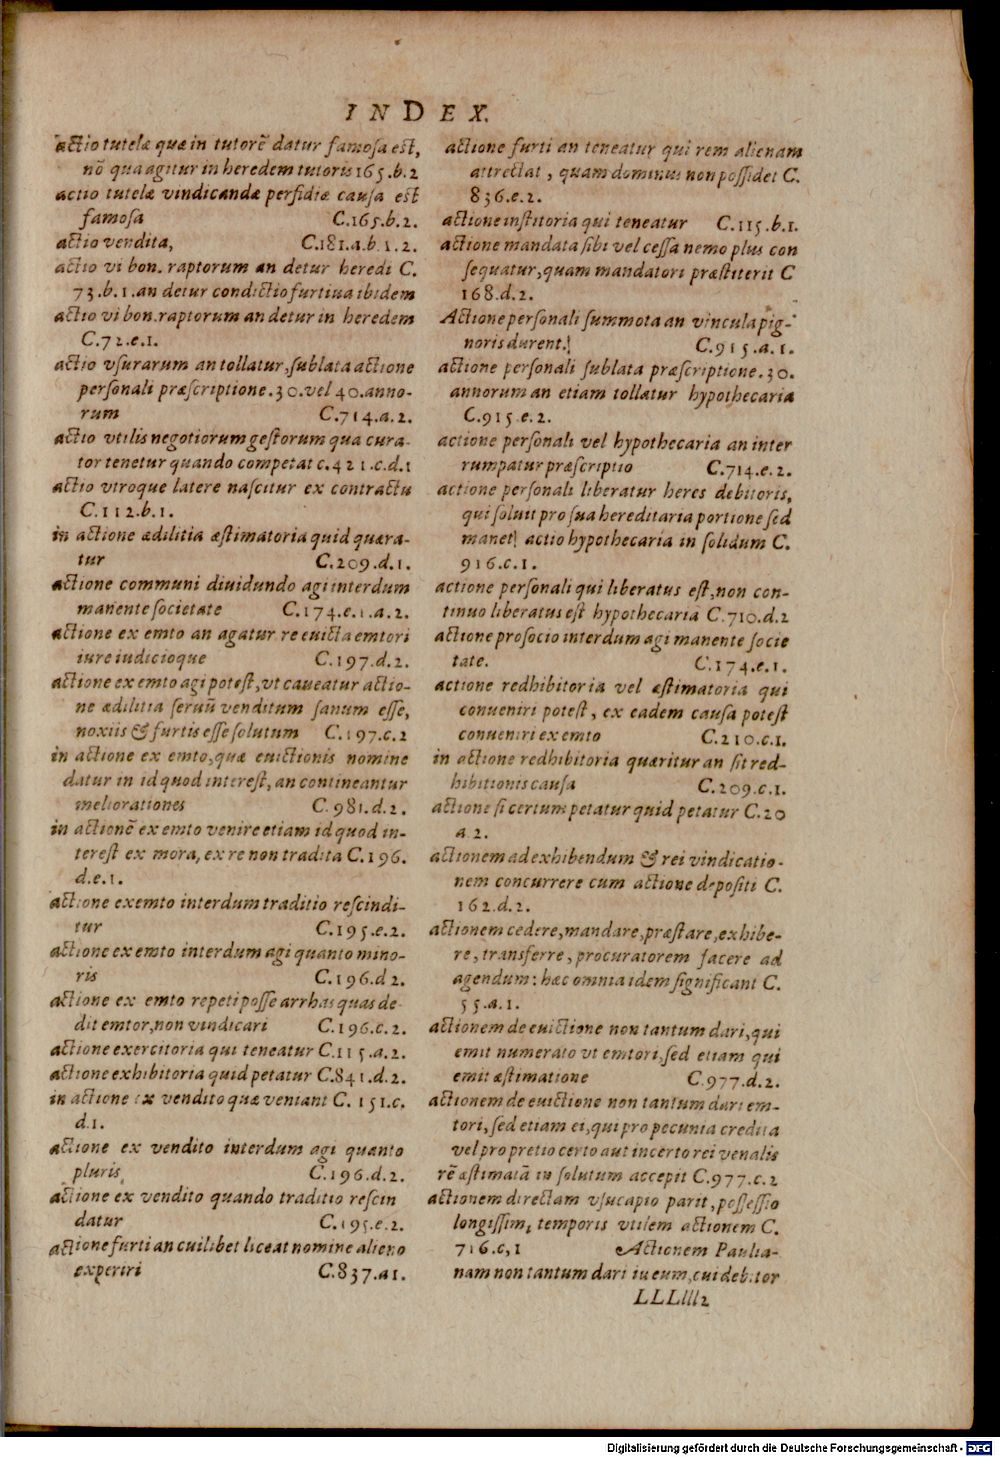 INDEX.
actio tutelæ quæ in tutorē datur famosa est,
nō qua agitur in heredem tutoris 165.b.2
actio tutelæ vindicandæ perfidiæ causa est
famosa C.165.b.2.
actio vendita, C.181.a.b.1.2.
actio vi bon. raptorum an detur heredi C.
73.b.1.an detur condictio furtiua ibidem
actio vi bon.raptorum an detur in heredem
C.72.e.1.
actio vsurarum an tollatur, sublata actione
personali præscriptione.30.vel 40.anno-
rum C.714.a.2.
actio vtilis negotiorum gestorum qua cura-
tor tenetur quando competat c.421.c.d.1
actio vtroque latere nascitur ex contractu
C.112.b.1.
in actione ædilitia æstimatoria quid quæra-
tur C.209.d.1.
actione communi diuidundo agi interdum
manente societate C.174.e.1.a.2.
actione ex emto an agatur re euicta emtori
iure iudicioque C.197.d.2.
actione ex emto agi potest, vt caueatur actio-
ne ædilitia seruū venditum sanum esse,
noxiis & furtis esse solutum C.197.c.2
in actione ex emto, quæ euictionis nomine
datur in id quod interest, an contineantur
meliorationes C.981.d.2.
in actionē ex emto venire etiam id quod in-
terest ex mora, ex re non tradita C.196.
d.e.1.
actione ex emto interdum traditio rescindi-
tur C.195.e.2.
actione ex emto interdum agi quanto mino-
ris C.196.d 2.
actione ex emto repeti posse arrhas quas de-
dit emtor, non vindicari C.196.c.2.
actione exercitoria qui teneatur C.115.a.2.
actione exhibitoria quid petatur C.841.d.2.
in actione ex vendito quæ veniant C. 151.c.
d.1.
actione ex vendito interdum agi quanto
pluris C.196.d.2.
actione ex vendito quando traditio rescin
datur C.195.e.2.
actione furti an cuilibet liceat nomine alieno
experiri C.837.a1.
actione furti an teneatur qui rem alienam
attrectat, quam dominus non possidet C.
836.e.2.
actione institoria qui teneatur C.115.b.1.
actione mandata sibi vel cessa nemo plus con
sequatur, quam mandatori præstiterit C
168.d.2.
Actione personali summota an vincula pig-
noris durent. C.915.a.1.
actione personali sublata præscriptione.30.
annorum an etiam tollatur hypothecaria
C.915.e.2.
actione personali vel hypothecaria an inter
rumpatur præscriptio C.714.e.2.
actione personali liberatur heres debitoris,
qui soluit pro sua hereditaria portione sed
manet actio hypothecaria in solidum C.
916.c.1.
actione personali qui liberatus est, non con-
tinuo liberatus est hypothecaria C.710.d.2
actione pro socio interdum agi manente socie
tate. C.174.e.1.
actione redhibitoria vel æstimatoria qui
conueniri potest, ex eadem causa potest
conueniri ex emto C.210.c.1.
in actione redhibitoria quæritur an sit red-
hibitionis causa C.209.c.1.
actione si certum petatur quid petatur C.20
a.2.
actionem ad exhibendum & rei vindicatio-
nem concurrere cum actione depositi C.
162.d.2.
actionem cedere, mandare, præstare, exhibe-
re, transferre, procuratorem facere ad
agendum: hæc omnia idem significant C.
55.a.1.
actionem de euictione non tantum dari, qui
emit numerato vt emtori, sed etiam qui
emit æstimatione C.977.d.2.
actionem de euictione non tantum dari em-
tori, sed etiam ei, qui pro pecunia credita
vel pro pretio certo aut incerto rei venalis
rē æstimatā in solutum accepit C.977.c.2
actionem directam vsucapio parit, possessio
longissimi temporis vtilem actionem C.
716.c,1 Actionem Paulia-
nam non tantum dari in eum, cui debitor
LLLlll2
Digitalisierung gefördert durch die Deutsche Forschungsgemeinschaft - DFG